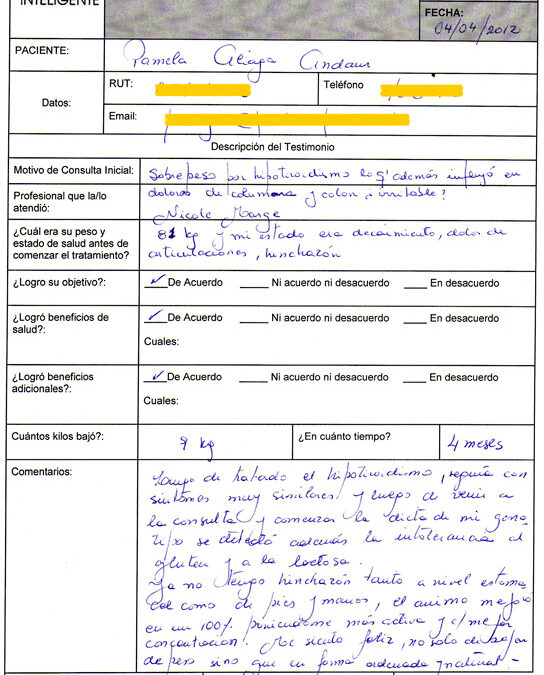 INTELIGENTE
FECHA:
04/04/2012
PACIENTE: Pamela Aliaga Andaur
Datos:
RUT:
Teléfono
Email:
Descripción del Testimonio
Motivo de Consulta Inicial: Sobrepeso por hipotiroidismo lo q' además influyó en
dolores de columna y colon ¿irritable?
Profesional que la/lo
atendió: Nicole Marge
¿Cuál era su peso y
estado de salud antes de
comenzar el tratamiento?
81 kg y mi estado era decaimiento, dolor de
articulaciones, hinchazón
¿Logro su objetivo?: ✓ De Acuerdo Ni acuerdo ni desacuerdo En desacuerdo
¿Logró beneficios de
salud?: ✓ De Acuerdo Ni acuerdo ni desacuerdo En desacuerdo
Cuales:
¿Logró beneficios
adicionales?: ✓ De Acuerdo Ni acuerdo ni desacuerdo En desacuerdo
Cuales:
Cuántos kilos bajó?: 9 kg ¿En cuánto tiempo?: 4 meses
Comentarios:
Luego de tratado el hipotiroidismo, seguía con
síntomas muy similares y luego de venir a
la consulta y comenzar la dieta de mi geno
tipo se detectó además la intolerancia al
gluten y a la lactosa.
Ya no tengo hinchazón tanto a nivel estoma
cal como de pies y manos, el animo mejoró
en un 100% sintiendome más activa y c/mejor
concentración. Me siento feliz, no solo de bajar
de peso sino que en forma ordenada y natural.-